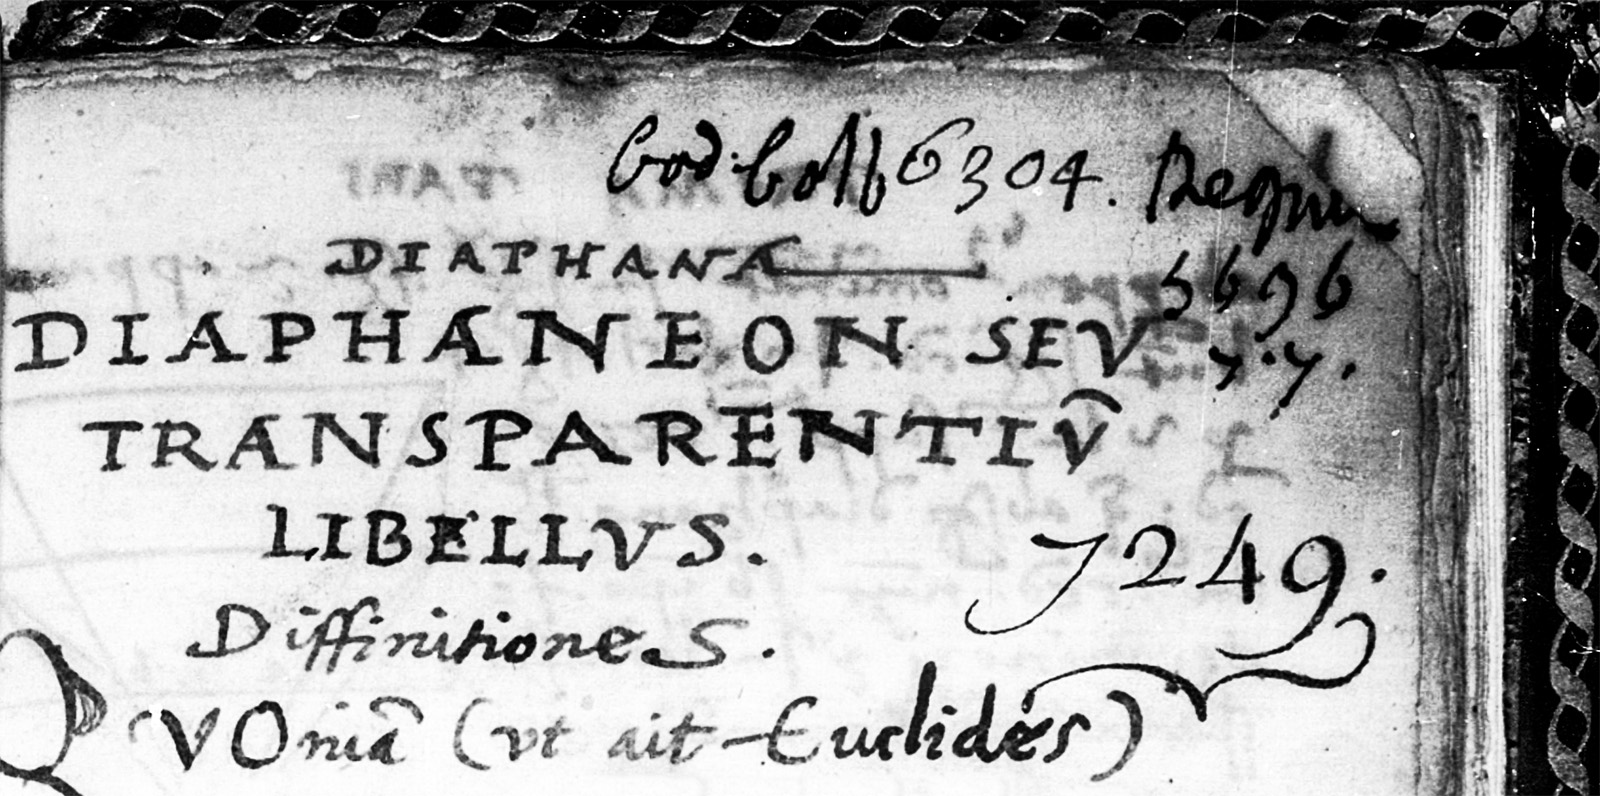 Cod. Colb 6304. Regius
DIAPHANA
5696
DIAPHANEON SEV
7.7.
TRANSPARENTIṼ
LIBELLVS.
7249.
DiffinitioneS.
QVOniã (vt ait Euclides)